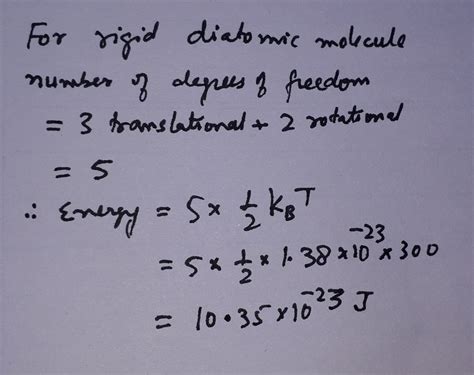 For rigid diatomic molecule
number of degrees of freedom
= 3 translational + 2 rotational
= 5
∴ Energy = 5 × 1/2 k_B T
= 5 × 1/2 × 1.38 × 10^-23 × 300
= 10.35 × 10^-23 J